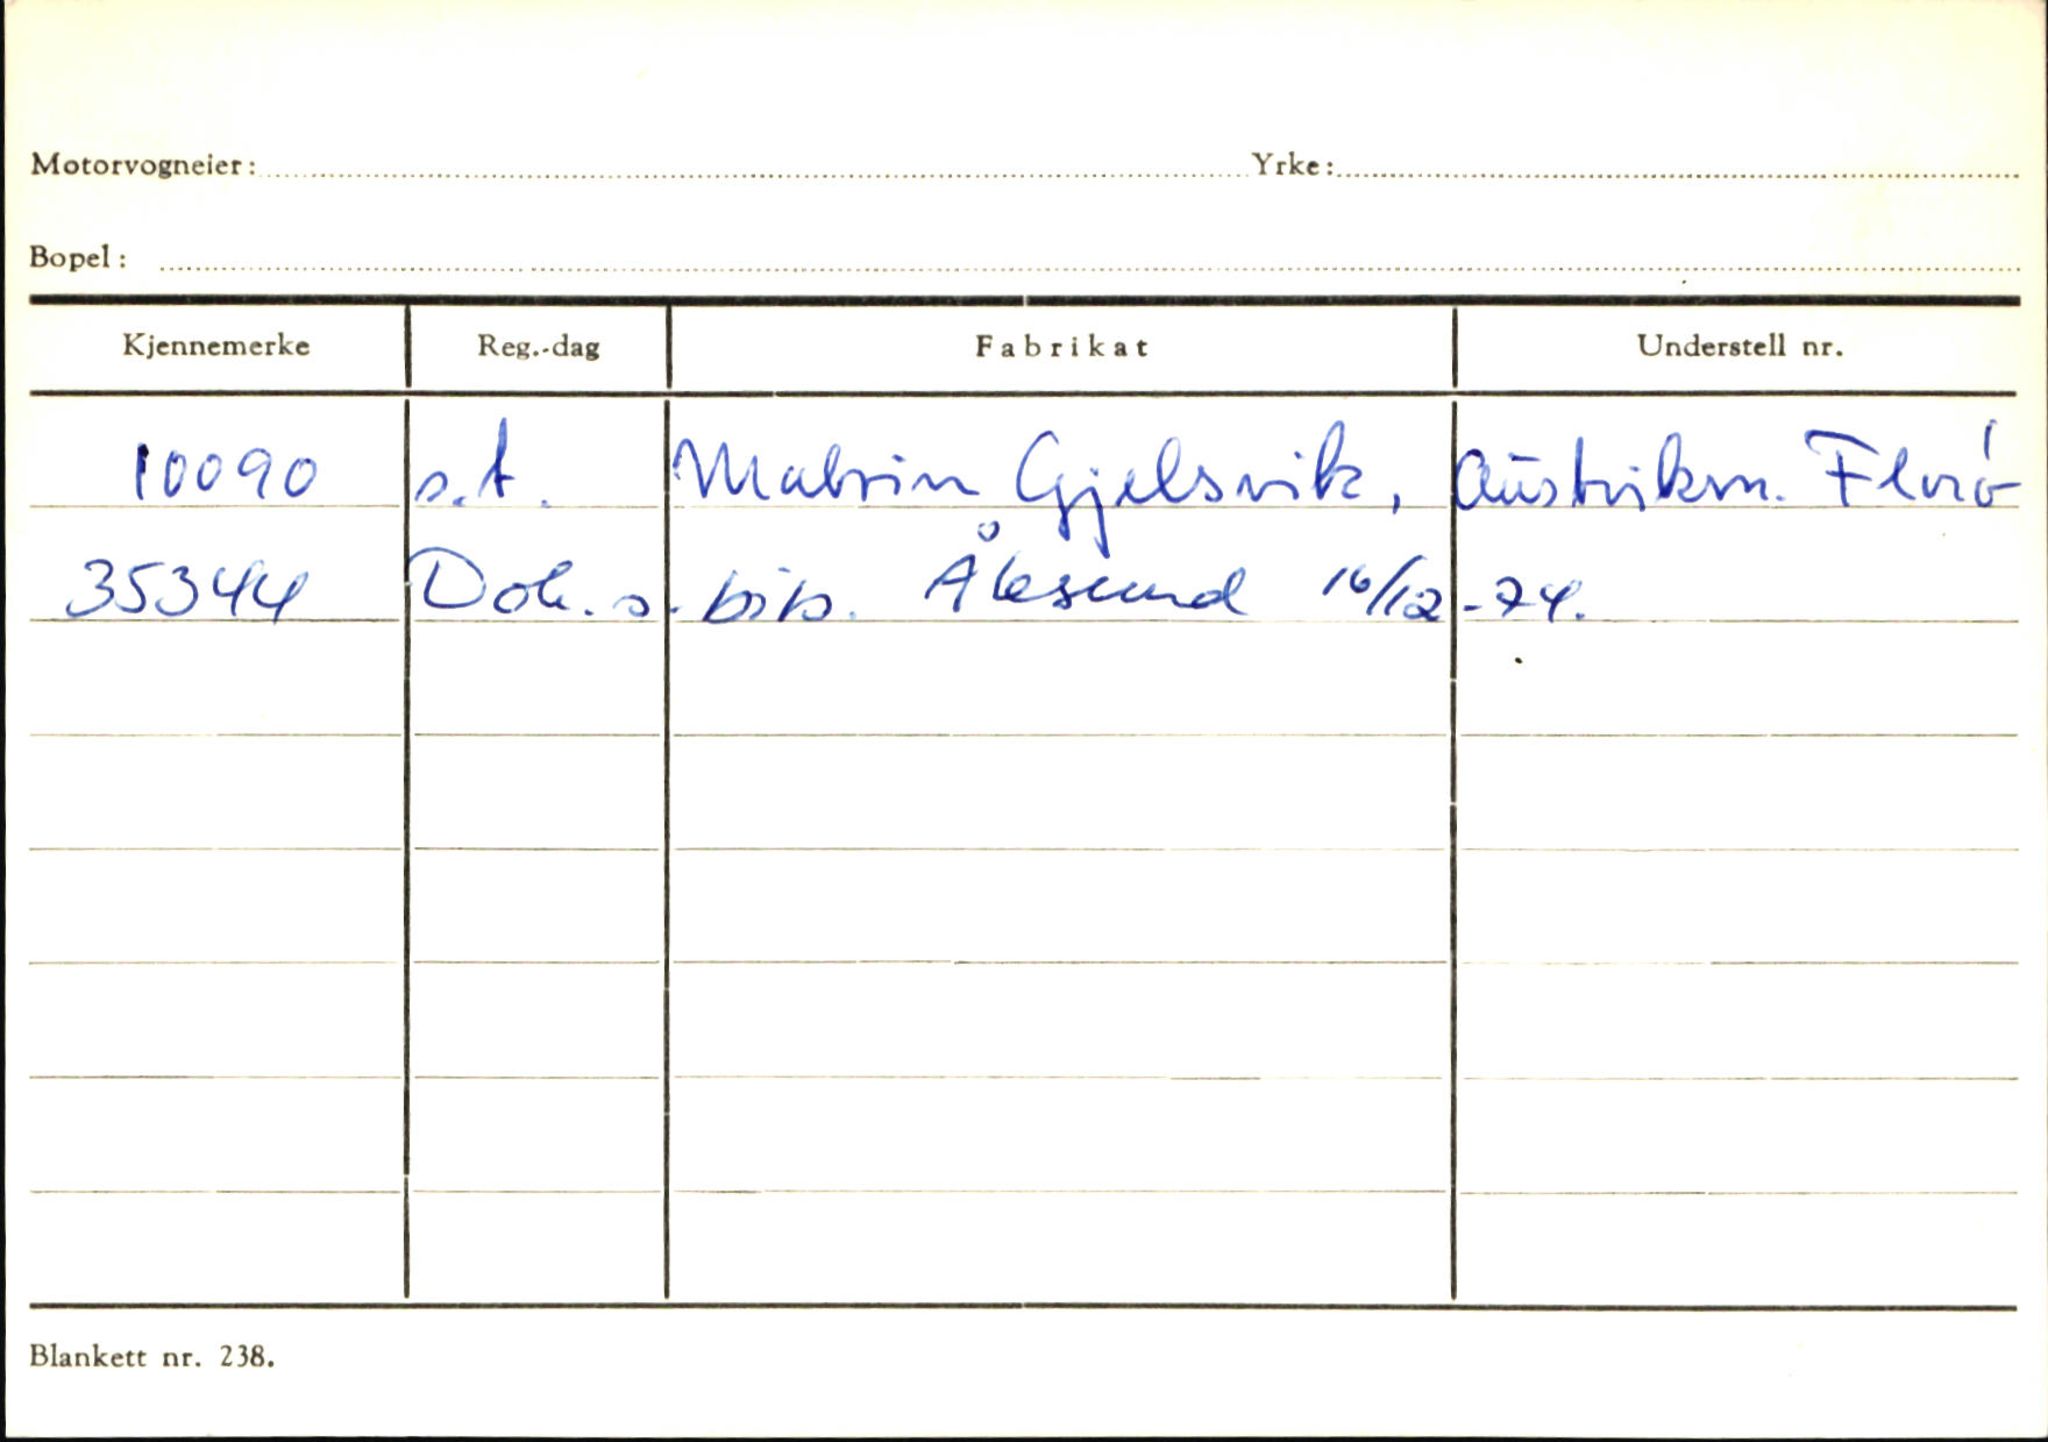 Motorvogneier: Yrke:
Bopel:
Kjennemerke Reg.-dag Fabrikat Understell nr.
10090 s.t. Malvin Gjelsvik, Florø
35344 Dok. s. Ålesund 16/12-74.
Blankett nr. 238.